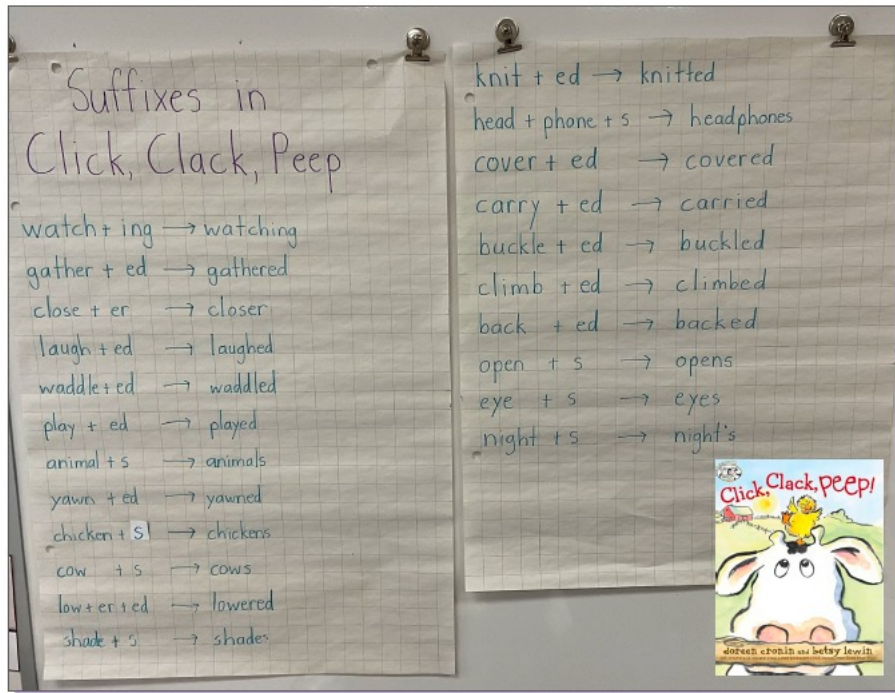 Suffixes in
Click, Clack, Peep
watch + ing → watching
gather + ed → gathered
close + er → closer
laugh + ed → laughed
waddle + ed → waddled
play + ed → played
animal + s → animals
yawn + ed → yawned
chicken + s → chickens
cow + s → cows
low + er + ed → lowered
shade + s → shades
knit + ed → knitted
head + phone + s → headphones
cover + ed → covered
carry + ed → carried
buckle + ed → buckled
climb + ed → climbed
back + ed → backed
open + s → opens
eye + s → eyes
night + s → night's
Click, Clack, PEEP!
doreen cronin and betsy lewin